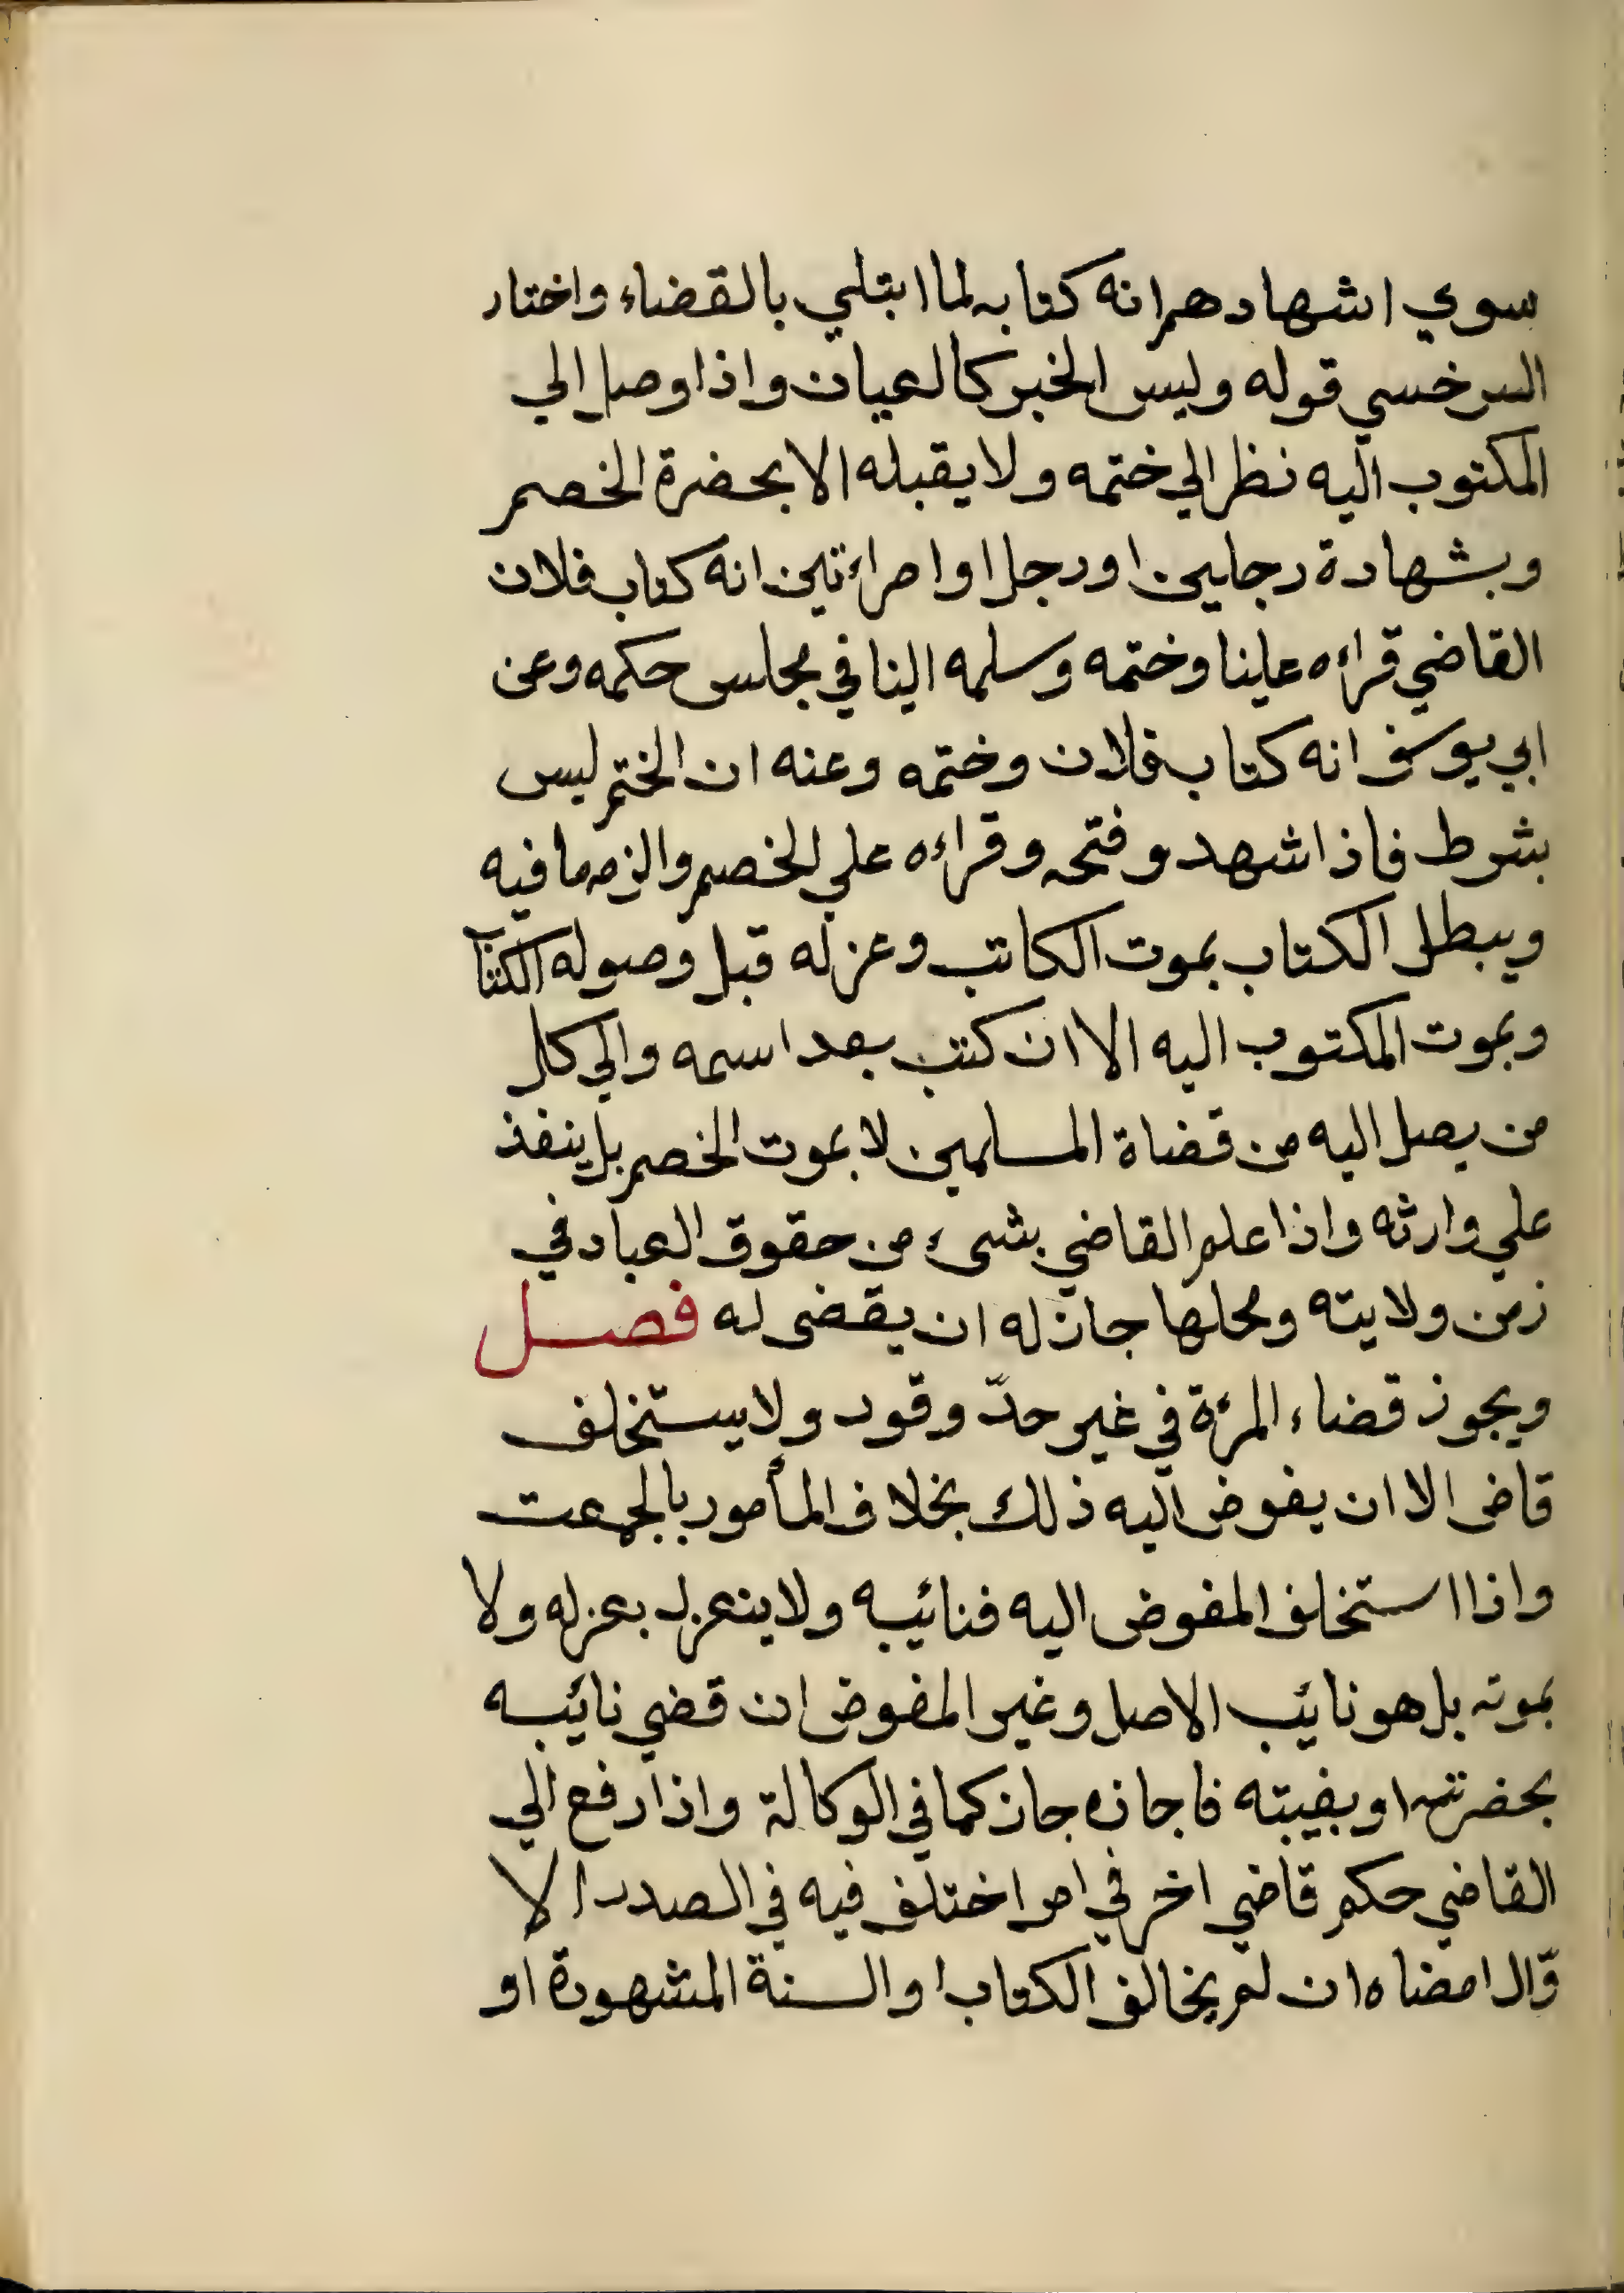 سوي اشهادهم انه كتابه لما ابتلي بالقضاء واختار
السرخسي قوله وليس الخبر كالعيان واذا وصل الي
المكتوب اليه نظر الي ختمه ولا يقبله الا بحضرة الخصم
وبشهادة رجلين او رجل او امراءتين انه كتاب فلان
القاضي قراءه علينا وختمه وسلمه الينا في مجلس حكمه وعن
ابي يوسف انه كتاب فلان وختمه وعنه ان الختم ليس
بشرط فاذا شهد وفتحه وقراءه علي الخصم والزمه ما فيه
ويبطل الكتاب بموت الكاتب وعزله قبل وصوله الكتا
وبموت المكتوب اليه الا ان كتب بعد اسمه والي كل
من يصل اليه من قضاة المسلمين لا بموت الخصم بل ينفذ
علي وارثه واذا علم القاضي بشىء من حقوق العباد في
زمن ولايته ومحلها جاز له ان يقضى له فصل
ويجوز قضاء المرءة في غير حدّ وقود ولا يستخلف
قاضى الا ان يفوض اليه ذلك بخلاف المأمور بالجمعت
واذا استخلف المفوض اليه فنائيبه ولا ينعزل بعزله ولا
بموته بل هو نائيب الاصل وغير المفوض ان قضي نائيبه
بحضرته او بغيبته فاجازه جاز كما في الوكالة واذا رفع الي
القاضي حكم قاضي اخر في امر اختلف فيه في الصدر الا
وّال امضاه ان لم يخالف الكتاب او السنة المشهورة او